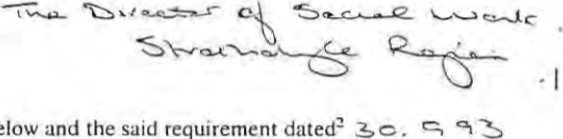 The Director of Social Work
Strathclyde Region
elow and the said requirement dated² 30.9.93